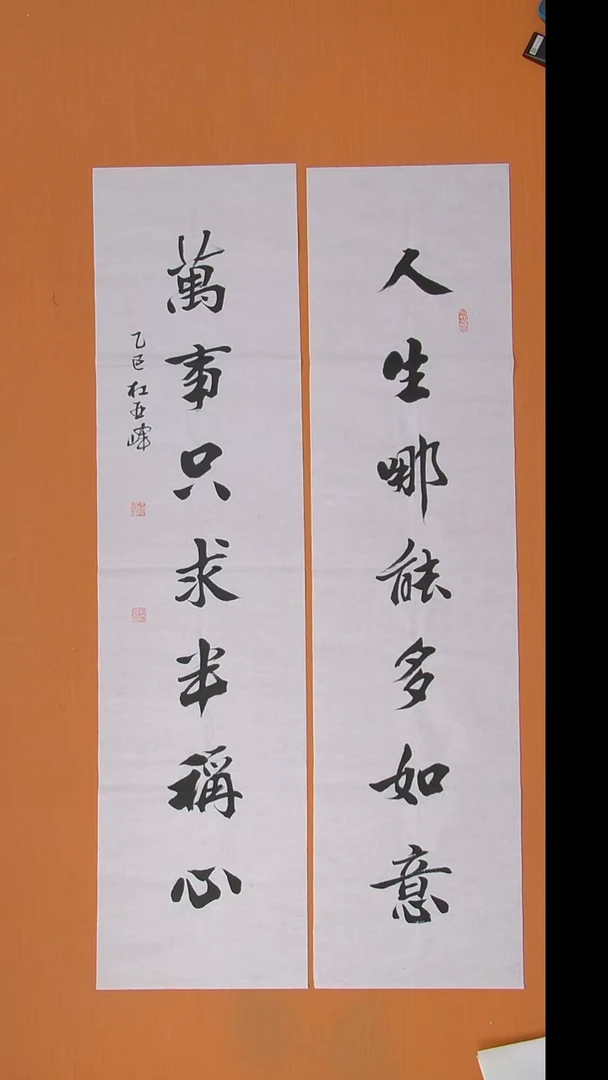 人生哪能多如意
萬事只求半稱心
乙巳杜亚峰